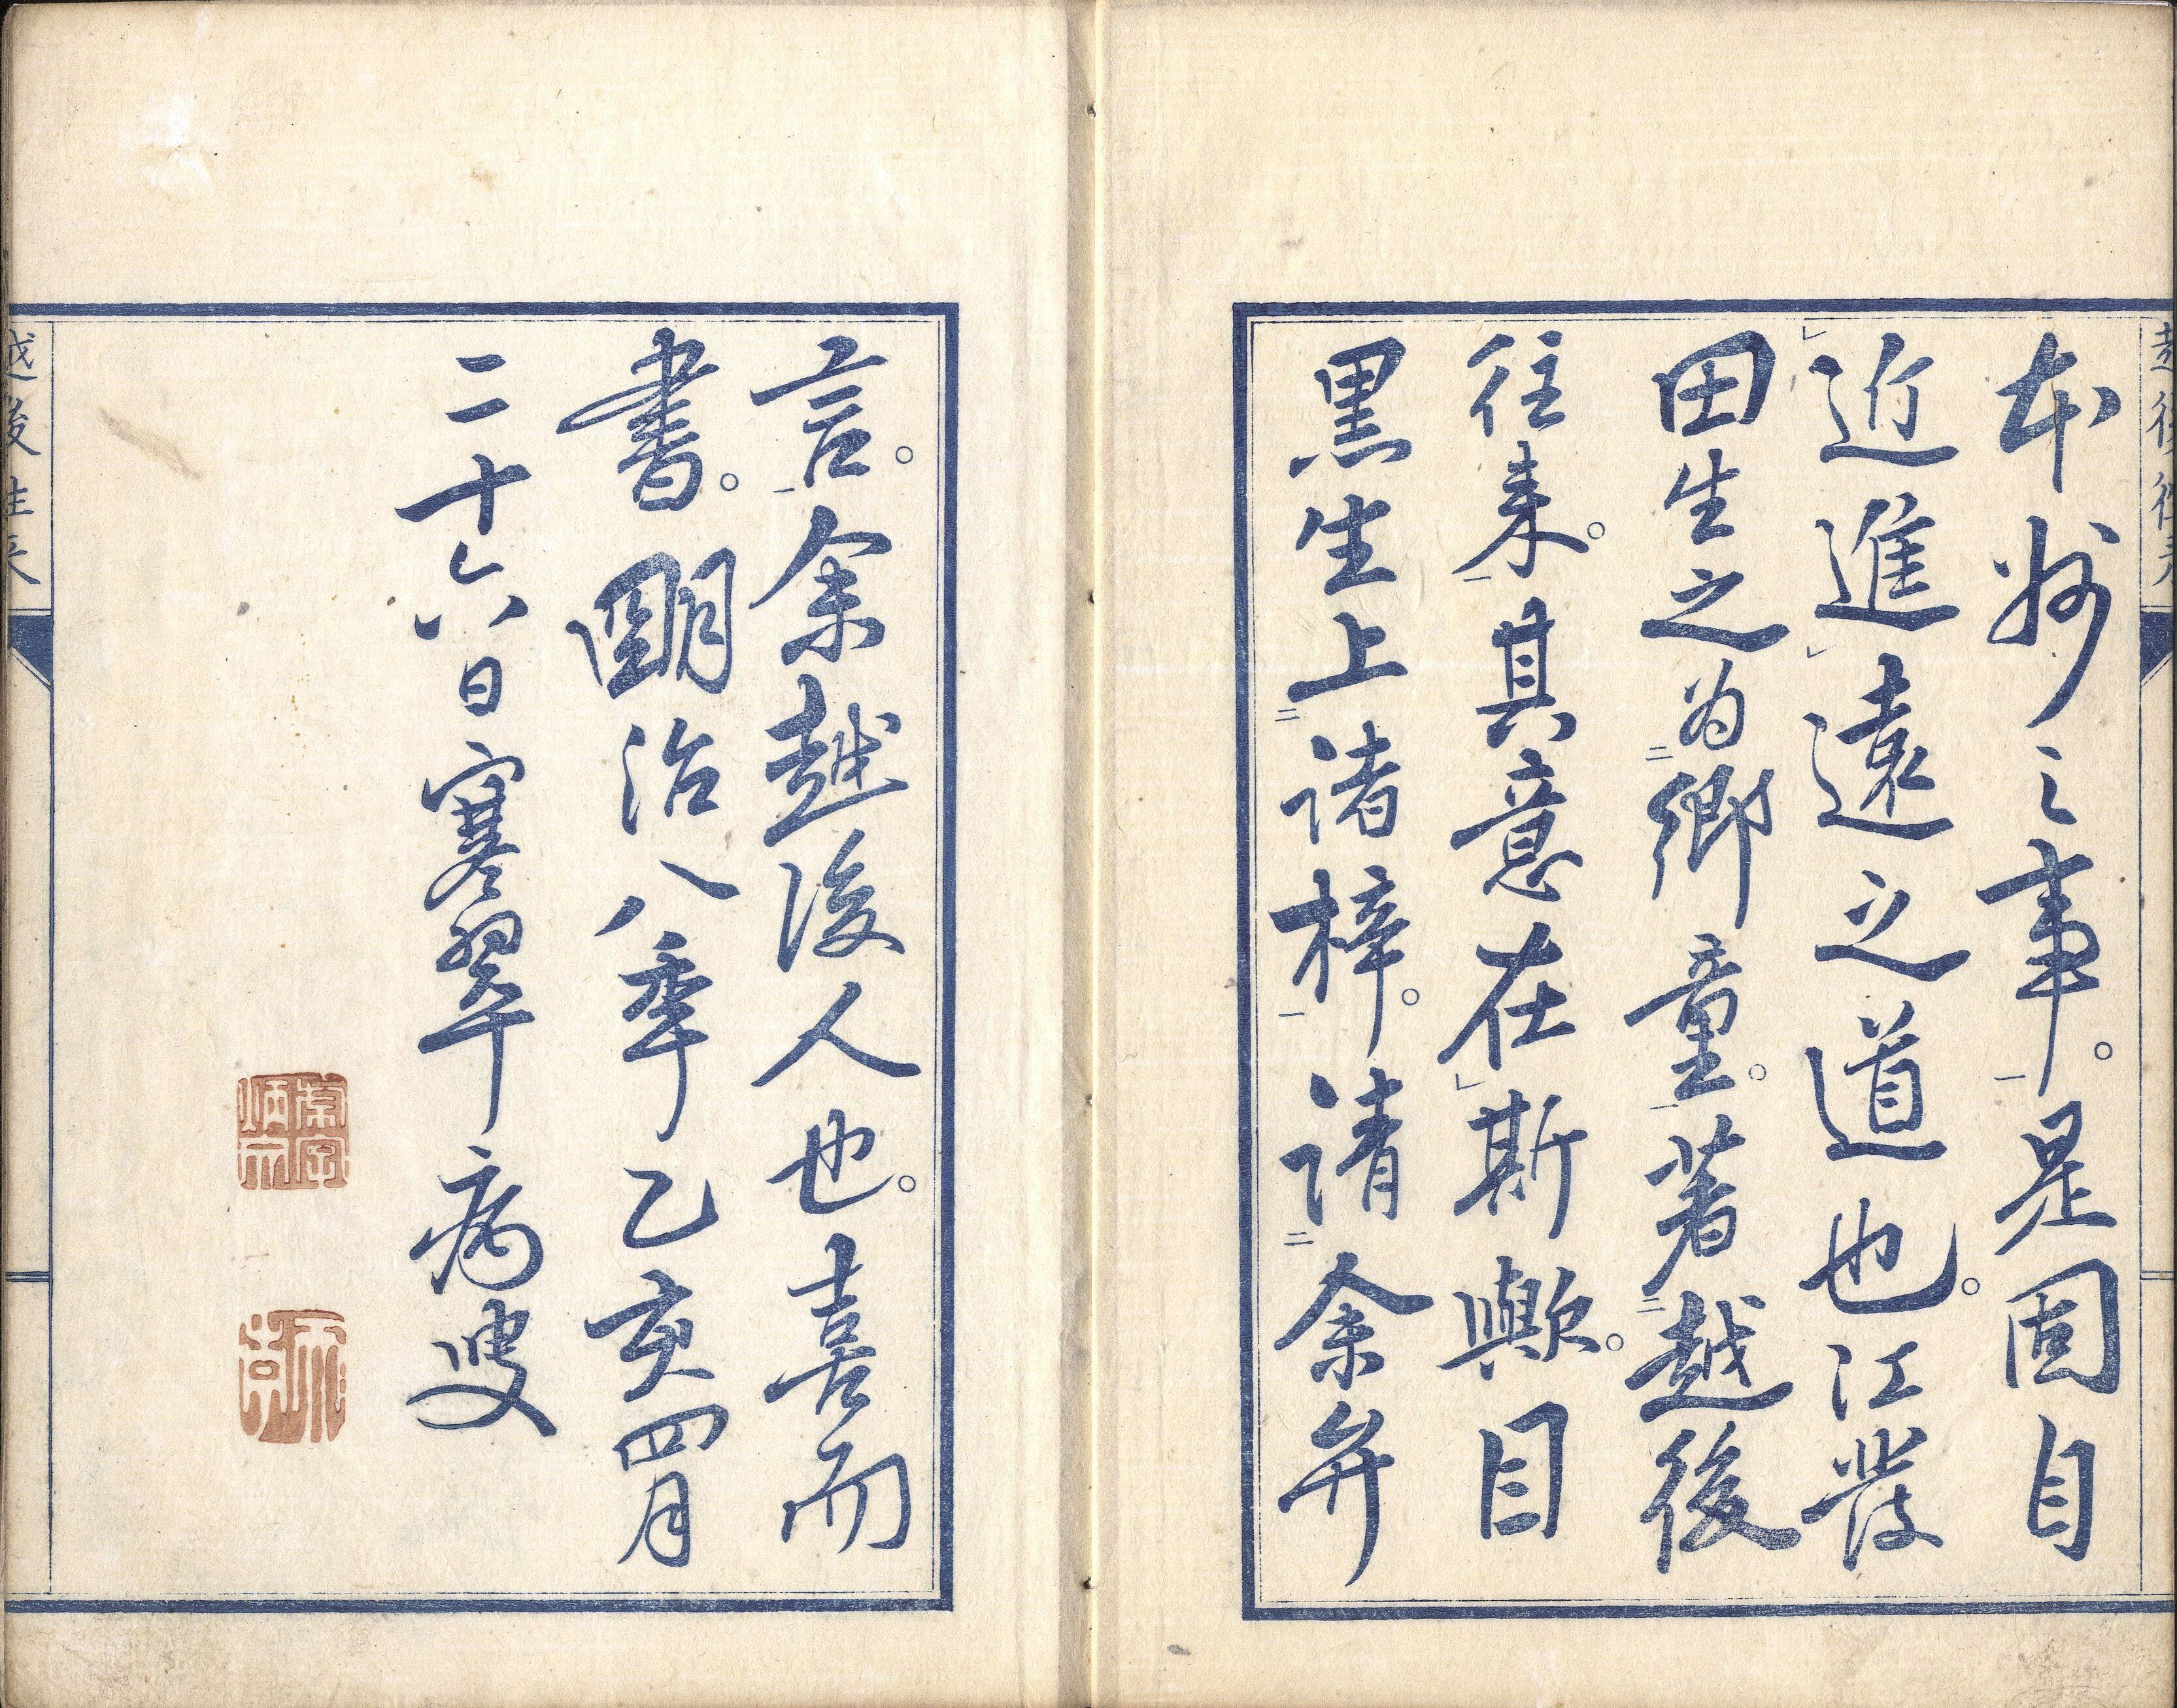 越後往来
本州之事。是固自
近進遠之道也。江發
田生之為鄉童。著越後
往来。其意在斯歟。目
黒生上諸梓。請余弁
言。余越後人也。喜而
書。朙治八秊乙亥四月
二十六日寒翠病叟
越後往来